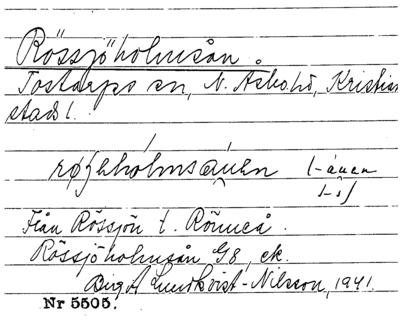 Rössjöholmsån.
Tostarps sn, N. Åsbohd, Kristian
stads l.
røʃehólmsáuen l-åuen
l-s/
Från Rössjön t. Rönneå.
Rössjöholmsån G8, ek.
Birgit Lundkvist-Nilsson, 1941.
Nr 5505.